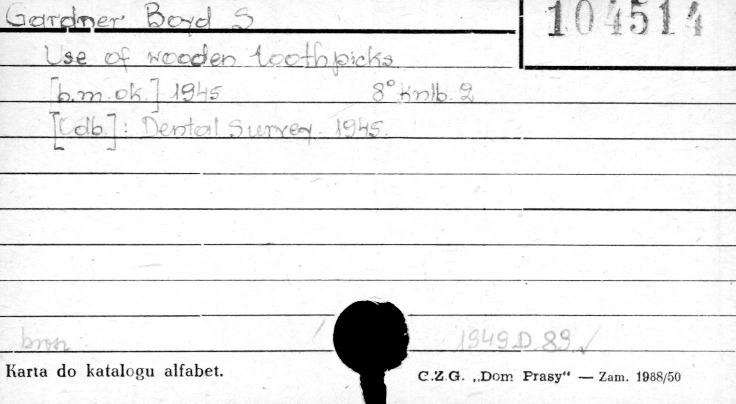 Gardner Boyd S
104514
Use of wooden toothpicks
[b.m.ok.] 1945 8° knlb. 2
[Odb.]: Dental Survey. 1945.
bros. 1949.D.89 ✓
Karta do katalogu alfabet.
C.Z.G. „Dom Prasy“ — Zam. 1988/50